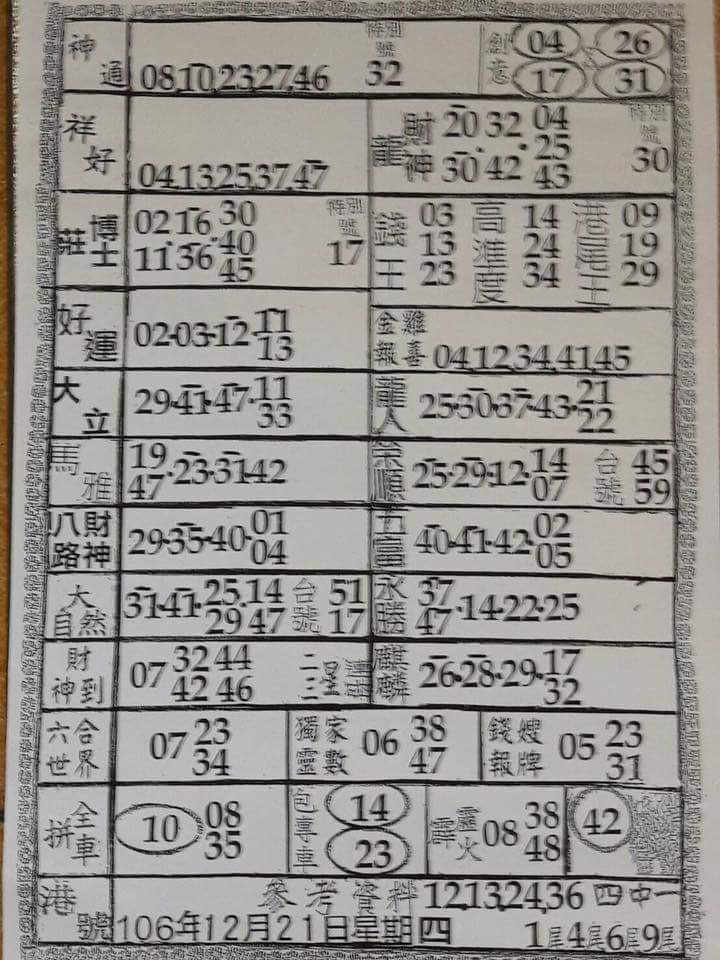 神通 08,10,23,27,46 特別號 32 創意 04 26
17 31
祥好 04,13,25,37,47
龍 財神 20 32 04
25
30 42 43
特別號 30
莊 博士 02 16 30
40
11 36 45
特別號 17
錢王 03 13 23 高進度 14 24 34 港 09 19 29
好運 02·03·12·11
13
金雞報喜 04,12,34,41,45
大立 29·41·47·11
33
龍人 25·30·37·43·21
22
馬雅 19
47·23·31·42
榮順 25·29·12·14
07
台號 45
59
八路財神 29·35·40·01
04
五富 40·41·42·02
05
大自然 31·41·25.14
29 47
台號 51
17
永勝 37
47·14·22·25
財神到 07 32 44
42 46
二三星
麒麟 26·28·29·17
32
六合世界 07 23
34
獨家靈數 06 38
47
錢嫂報牌 05 23
31
全車拼 10 08
35
包專車 14
23
霹靂火 08 38
48
42
港號 參考資料 12,13,24,36 四中一
106年12月21日星期四 1尾4尾6尾9尾